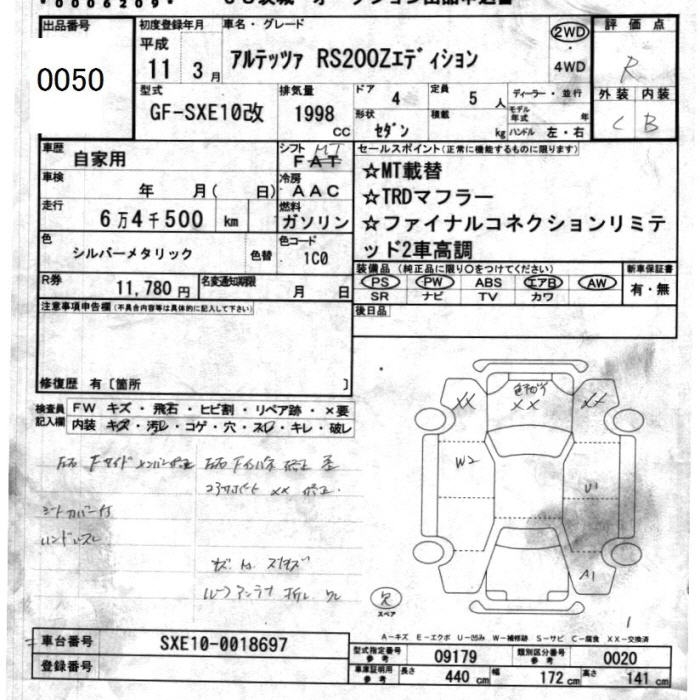 0006209
出品番号
0050
初度登録年月
平成
11 3月
車名・グレード
アルテッツァ RS200Zエディション
2WD
4WD
評価点
R
外装 内装
C B
型式
GF-SXE10改
排気量
1998 CC
ドア 4
定員 5人
形状 セダン
積載 kg
ディーラー・並行
モデル年式 年
ハンドル 左・右
車歴
自家用
シフト MT
FAT
車検
年 月( 日)
冷房
AAC
走行
6万4千500 km
燃料
ガソリン
色
シルバーメタリック
色替
色コード
1C0
R券
11,780円
名変通知期限
月 日
セールスポイント(正常に機能するものに限ります)
☆MT載替
☆TRDマフラー
☆ファイナルコネクションリミテ
ッド2車高調
装備品(純正品に限り○をつけてください)
PS PW ABS エアB AW
SR ナビ TV カワ
新車保証書
有・無
後日品
注意事項申告欄(不具合内容等は具体的に記入して下さい)
修復歴 有〔箇所 〕
検査員
記入欄
FW キズ・飛石・ヒビ割・リペア跡・×要
内装 キズ・汚レ・コゲ・穴・スレ・キレ・破レ
左右 Fサイドメンバー修正
左右Fインパネ 修正 歪
コアサポート XX 修正
シートカバー付
ハンドルスレ
ルーフアンテナ 折レ
XX
XX
XX
W2
U1
A1
欠
スペア
A-キズ E-エクボ U-凹み W-補修跡 S-サビ C-腐食 XX-交換済
車台番号
SXE10-0018697
登録番号
型式指定番号
参考
09179
類別区分番号
参考
0020
車庫証明用
参考
長さ 440 cm
幅 172 cm
高さ 141 cm